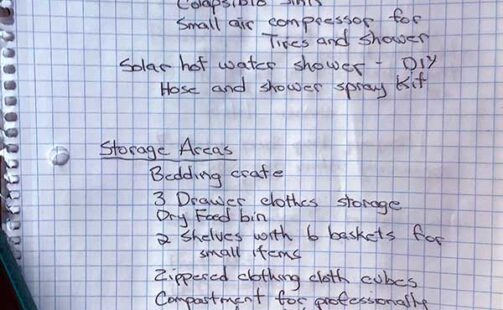 Colapsible sink
Small air compressor for
Tires and shower
Solar hot water shower - DIY
Hose and shower spray kit
Storage Areas
Bedding crate
3 Drawer clothes storage
Dry Food bin
2 shelves with 6 baskets for
small items
Zippered clothing cloth cubes
Compartment for professionally